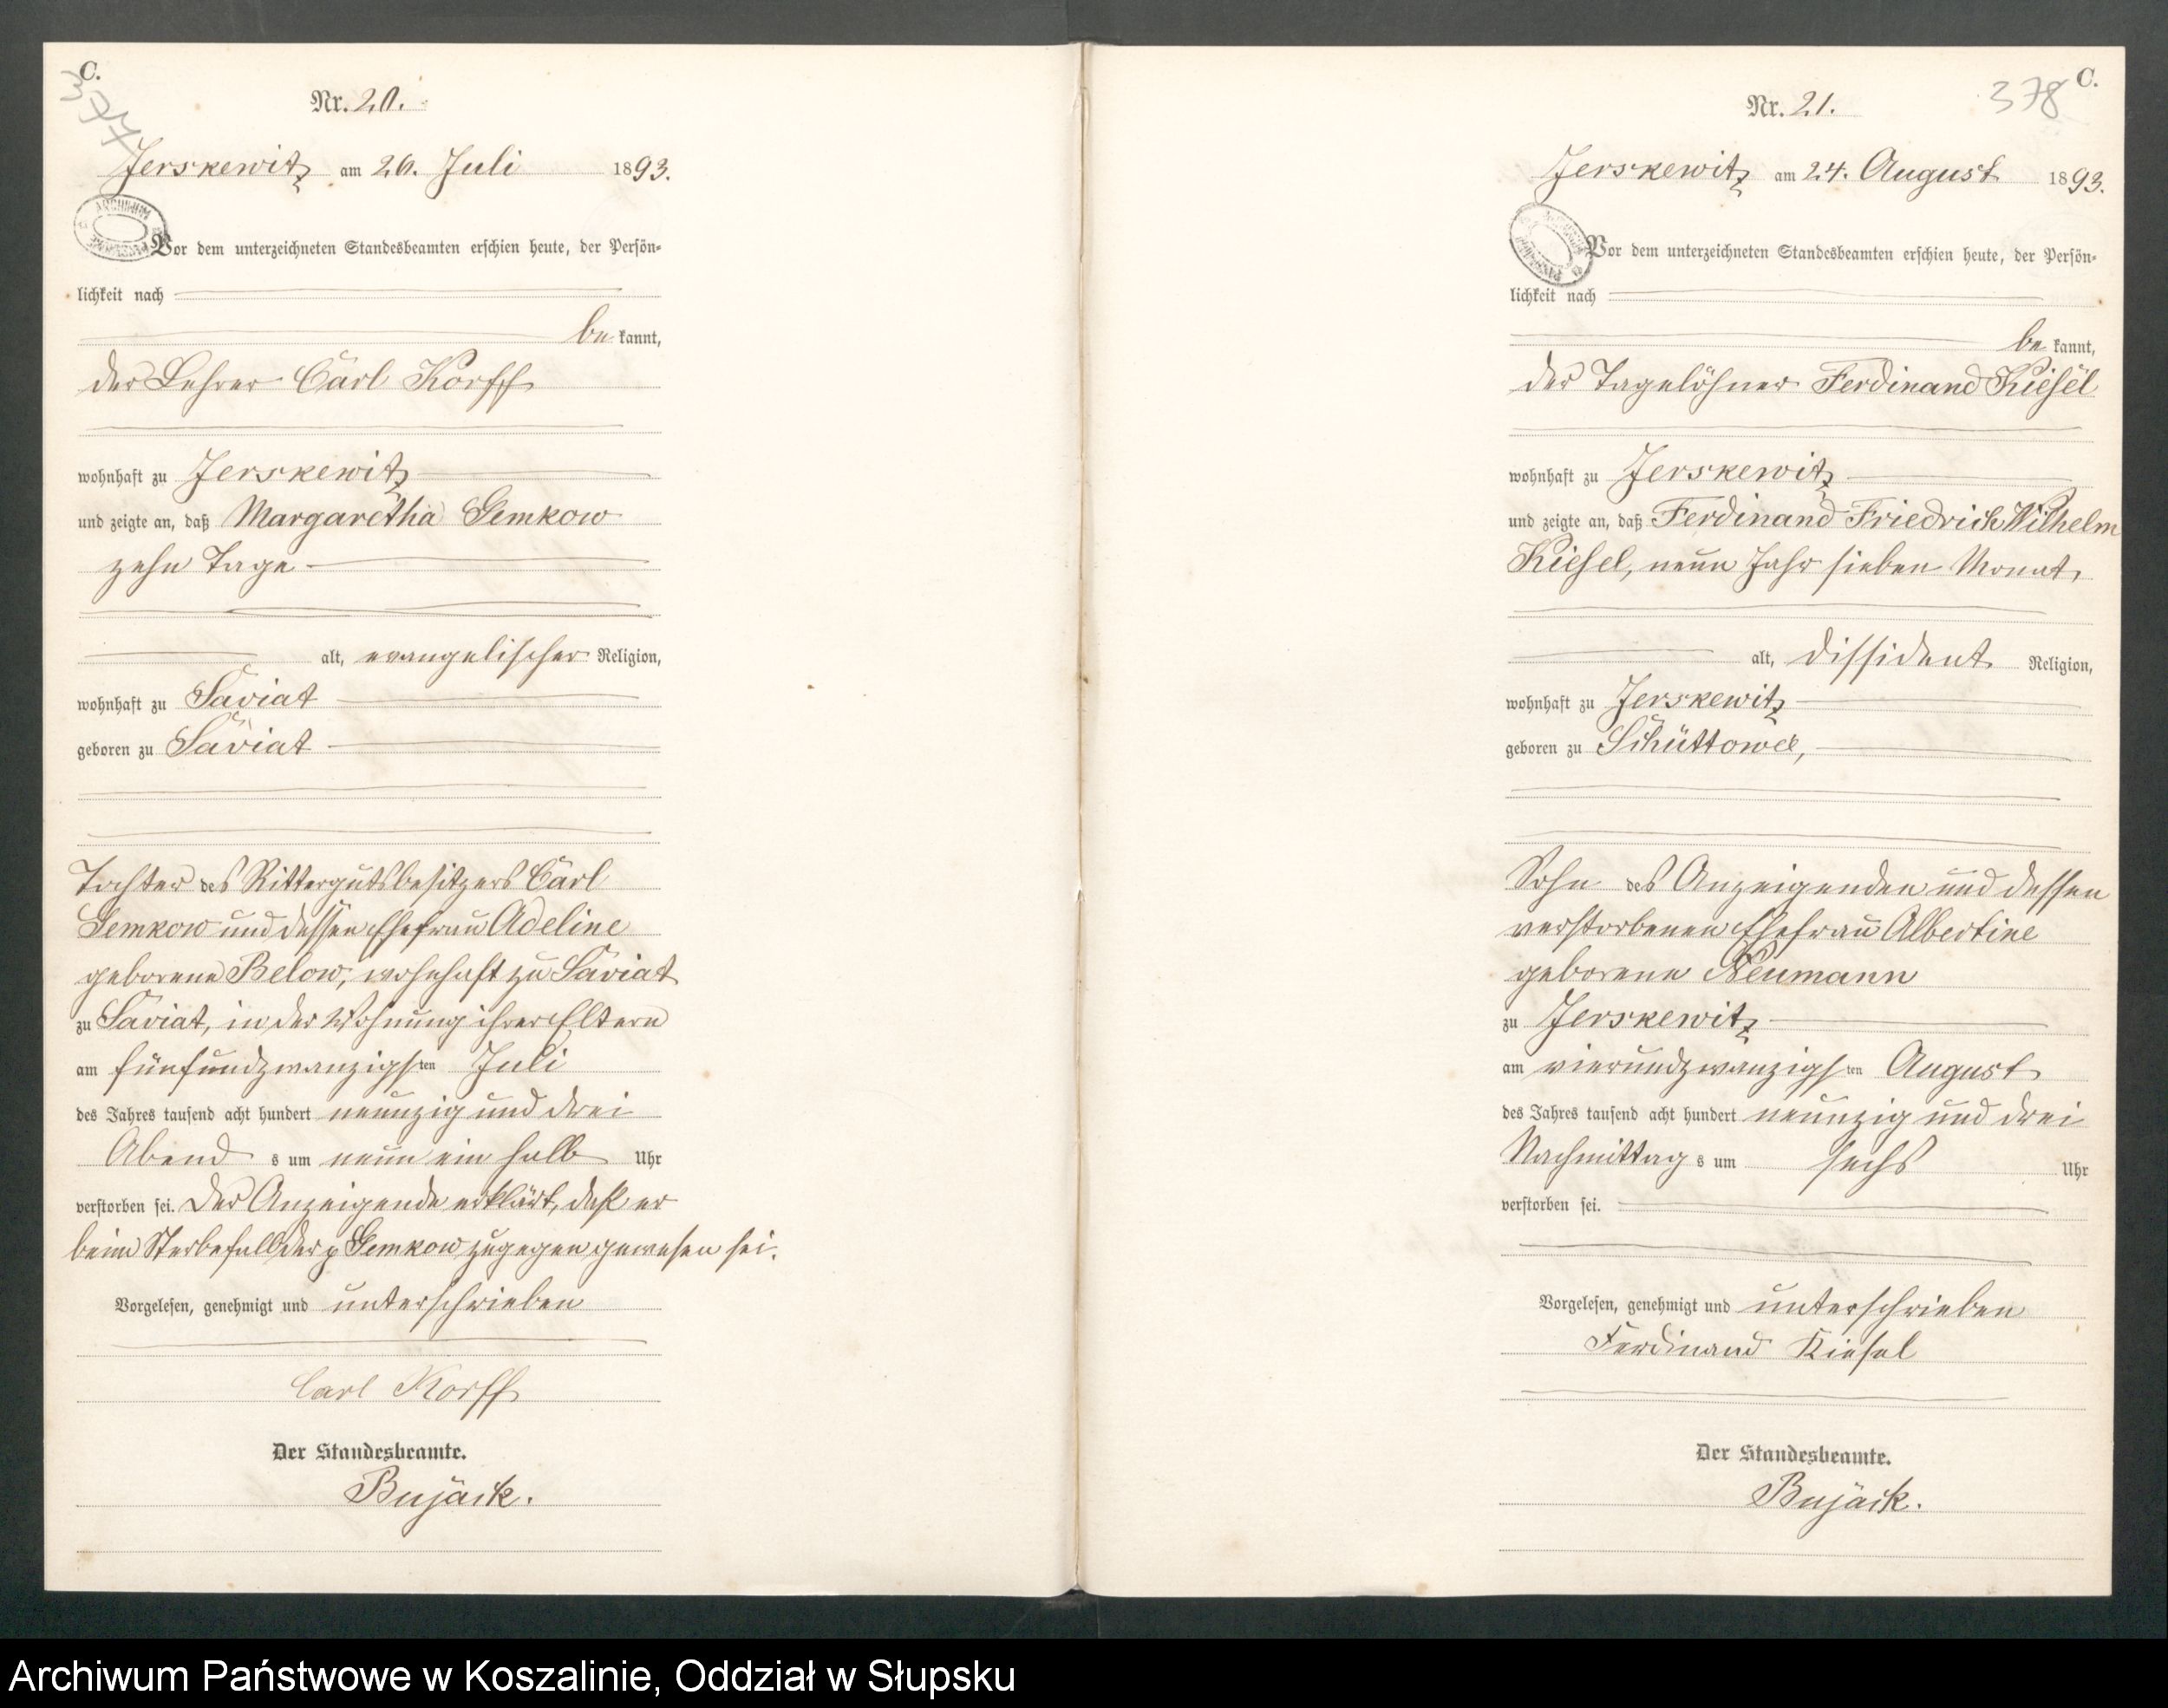 C.
377
Nr. 20.
Jerskewitz am 26. Juli 1893.
Vor dem unterzeichneten Standesbeamten erschien heute, der Persön-
lichkeit nach
be kannt,
der Lehrer Carl Korff
wohnhaft zu Jerskewitz
und zeigte an, daß Margaretha Gemkow
zehn Tage
alt, evangelischer Religion,
wohnhaft zu Saviat
geboren zu Saviat
Tochter des Rittergutsbesitzers Carl
Gemkow und dessen Ehefrau Adeline
geborene Below, wohnhaft zu Saviat
zu Saviat, in der Wohnung ihrer Eltern
am fünfundzwanzigsten Juli
des Jahres tausend acht hundert neunzig und drei
Abend s um neun ein halb Uhr
verstorben sei. Der Anzeigende erklärt, daß er
beim Sterbefall der p Gemkow zugegen gewesen sei.
Vorgelesen, genehmigt und unterschrieben
Carl Korff
Der Standesbeamte.
Bujack.
C.
378
Nr. 21.
Jerskewitz am 24. August 1893.
Vor dem unterzeichneten Standesbeamten erschien heute, der Persön-
lichkeit nach
be kannt,
der Tagelöhner Ferdinand Kiesel
wohnhaft zu Jerskewitz
und zeigte an, daß Ferdinand Friedrich Wilhelm
Kiesel, neun Jahr sieben Monat,
alt, dissident Religion,
wohnhaft zu Jerskewitz
geboren zu
Sohn des Anzeigenden und dessen
verstorbenen Ehefrau Albertine
geborene Neumann
zu Jerskewitz
am vierundzwanzigsten August
des Jahres tausend acht hundert neunzig und drei
Nachmittag s um sechs Uhr
verstorben sei.
Vorgelesen, genehmigt und unterschrieben
Ferdinand Kiesel
Der Standesbeamte.
Bujack.
Archiwum Państwowe w Koszalinie, Oddział w Słupsku